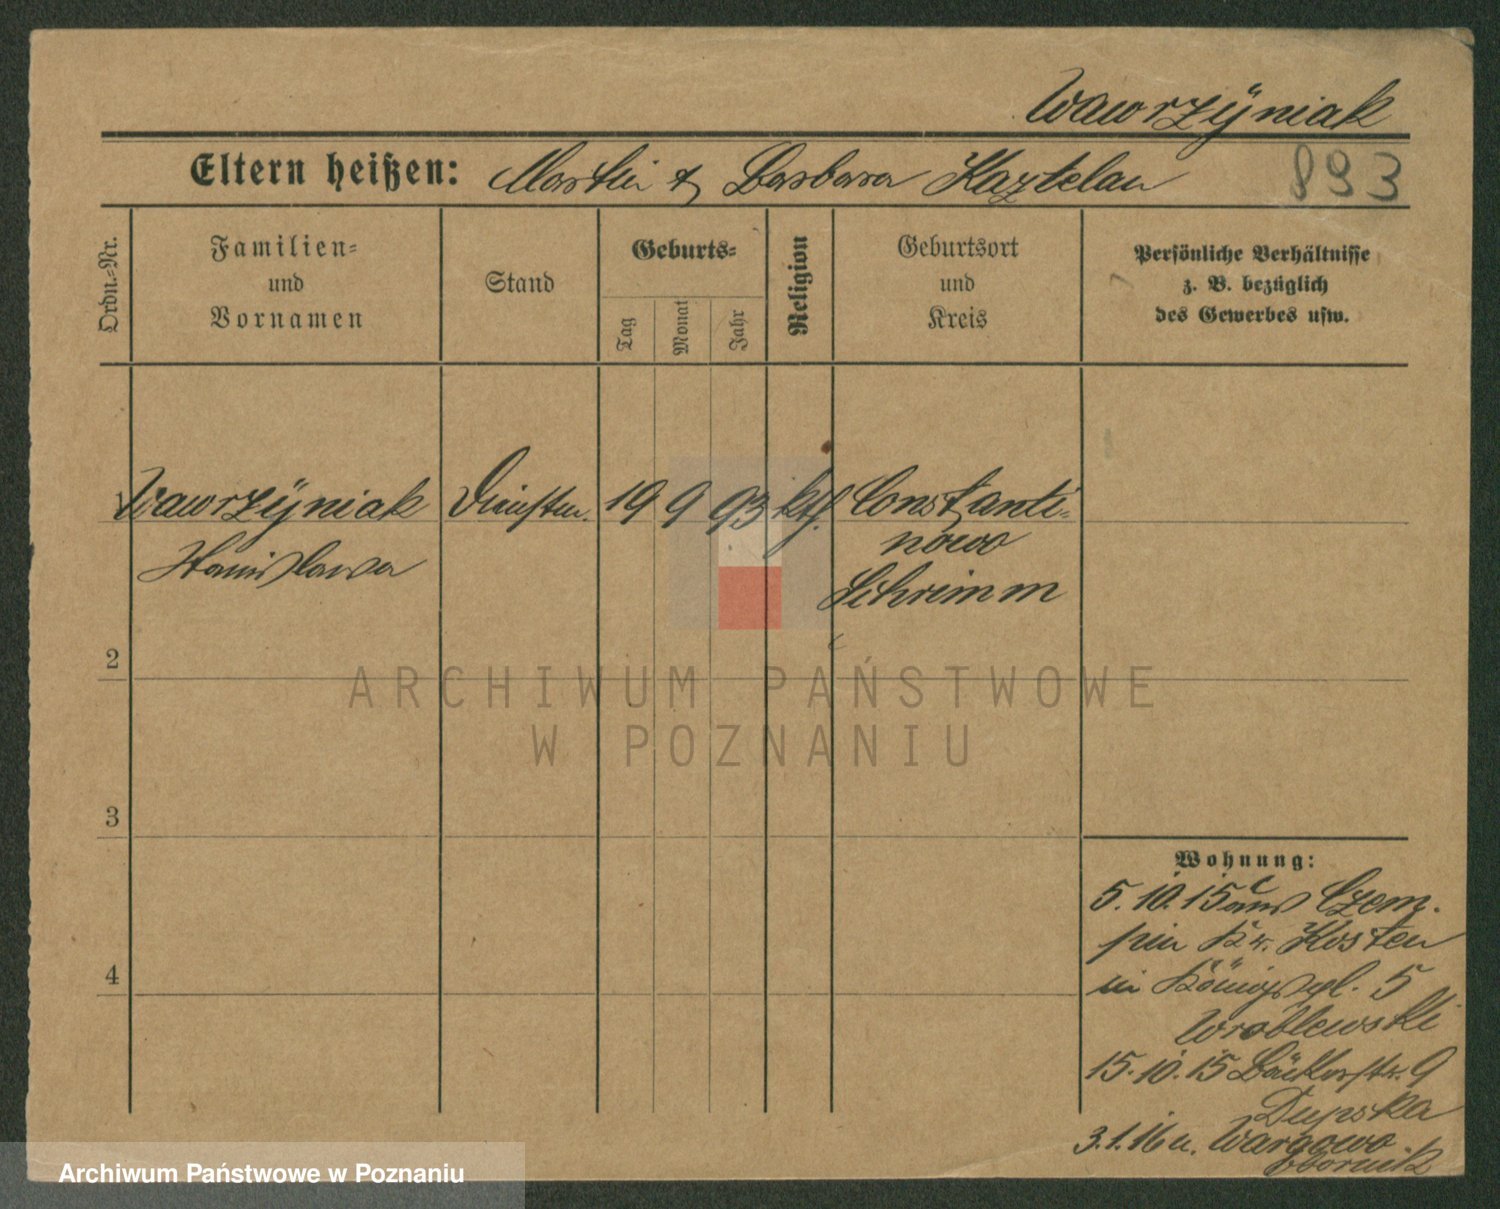 Wawrzÿniak
Eltern heißen: Martin & Barbara Kaztelan 893
Ordn.-Nr.
Familien-
und
Vornamen
Stand
Geburts-
Tag
Monat
Jahr
Religion
Geburtsort
und
Kreis
Persönliche Verhältnisse
z. B. bezüglich
des Gewerbes usw.
Wawrzÿniak 19 9 93 ktl. Constanti-
nowo
Stanislawa
Schrimm
2
3
4
Wohnung:
5.10.15 aus Czem-
pin Kr. Kosten
in Königspl. 5
Wroblewski
15.10.15 Bäckerstr. 9
Dupska
3.1.16 n. Wargowo
Obornik
ARCHIWUM PAŃSTWOWE
W POZNANIU
Archiwum Państwowe w Poznaniu